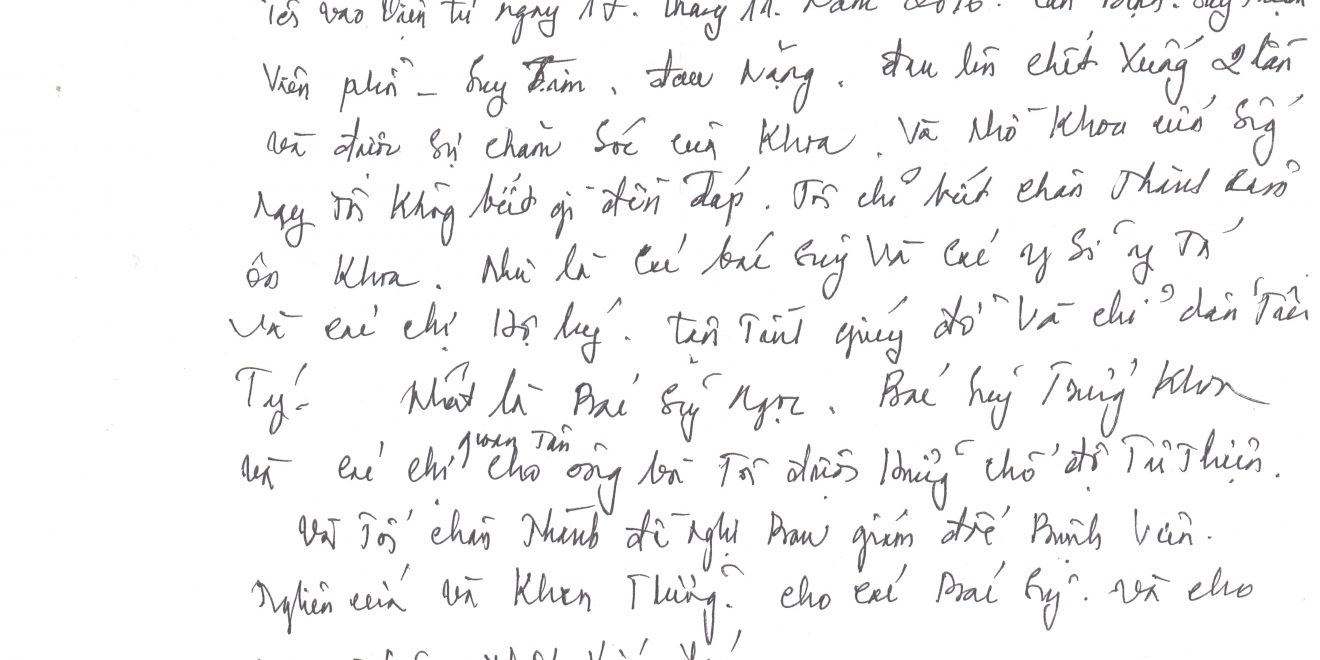 vào viện từ ngày 17. tháng 11. Năm 2016. căn bệnh. suy
Viên phổi - Suy Tim, đau Nặng. đau lên chết Xuống 2 lần
và được sự chăm sóc của Khoa. Và Nhờ Khoa cứu Sống
Nay Tôi Không biết gì đền đáp. Tôi chỉ biết chân Thành cảm
ơn Khoa. Như là Các bác sỹ Và Các y Sĩ y Tá
Và các chị Hộ lý. tận Tình giúy đở Và chỉ dẩn Tần
Tỵ. Nhất là Bác sỹ Ngọc. Bác sỹ Trưởng Khoa
và các chị quan Tân cho ông bà Tôi được hưởng chế độ Từ Thiện.
Và Tôi chân Thành đề Nghị Ban giám đốc Bệnh Viên.
Nghiên cứu và Khen Thưởng. cho các Bác Sỹ. và cho